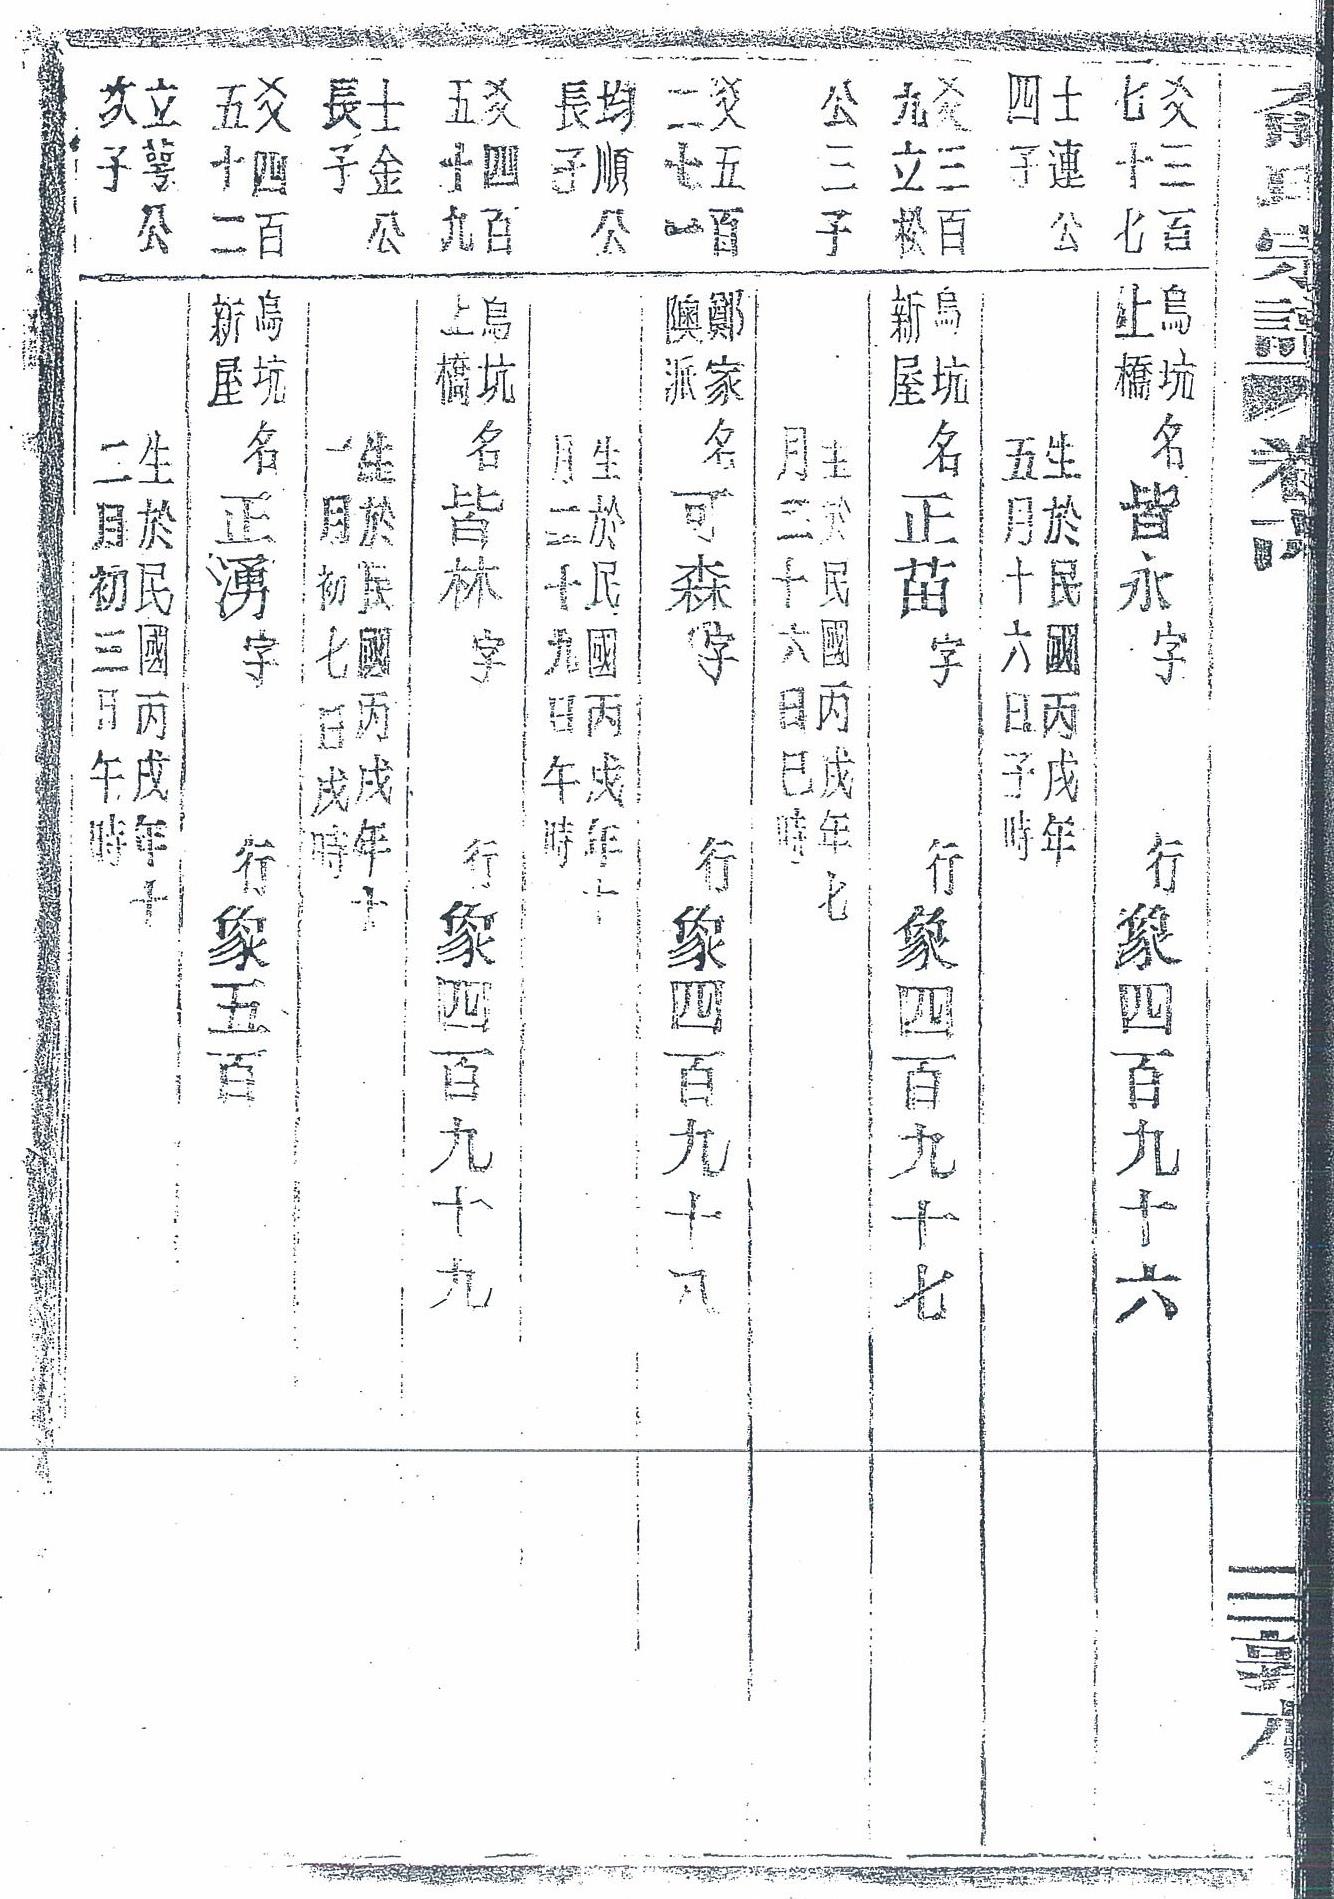 宗譜
爻三百
七十七
士連公
四子
烏坑
上橋
名皆永字
行象四百九十六
生於民國丙戌年
五月十六日子時
爻三百
九立松
公三子
烏坑
新屋
名正苗字
行象四百九十七
生於民國丙戌年七
月三十六日巳時
爻五百
二七一
均順公
長子
鄭家
隩派
名可森字
行象四百九十八
生於民國丙戌年十
月二十九日午時
爻四百
五十九
士金公
長子
烏坑
上橋
名皆林字
行象四百九十九
生於民國丙戌年十
一月初七日戌時
爻四百
五十二
立萼公
次子
烏坑
新屋
名正湧字
行象五百
生於民國丙戌年十
二月初三日午時